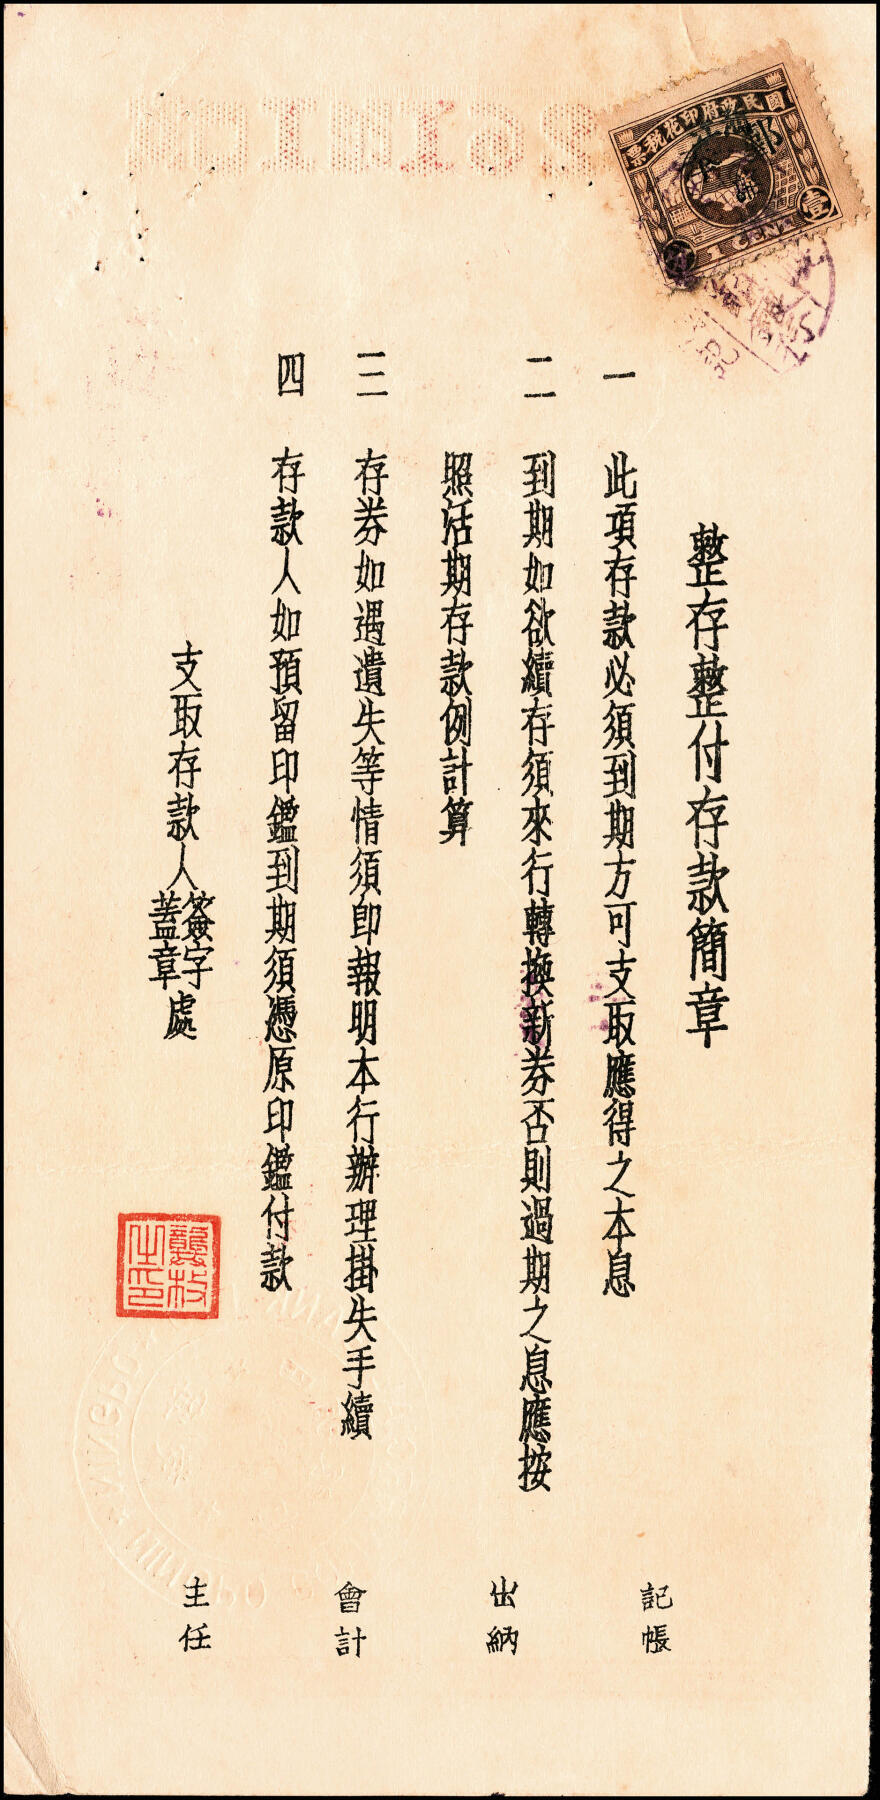 國民政府印花稅票
壹
1
整存整付存款簡章
一 此項存款必須到期方可支取應得之本息
二 到期如欲續存須來行轉換新券否則過期之息應按
照活期存款例計算
三 存券如遇遺失等情須即報明本行辦理掛失手續
四 存款人如預留印鑑到期須憑原印鑑付款
支取存款人簽字蓋章處
記帳
出納
會計
主任